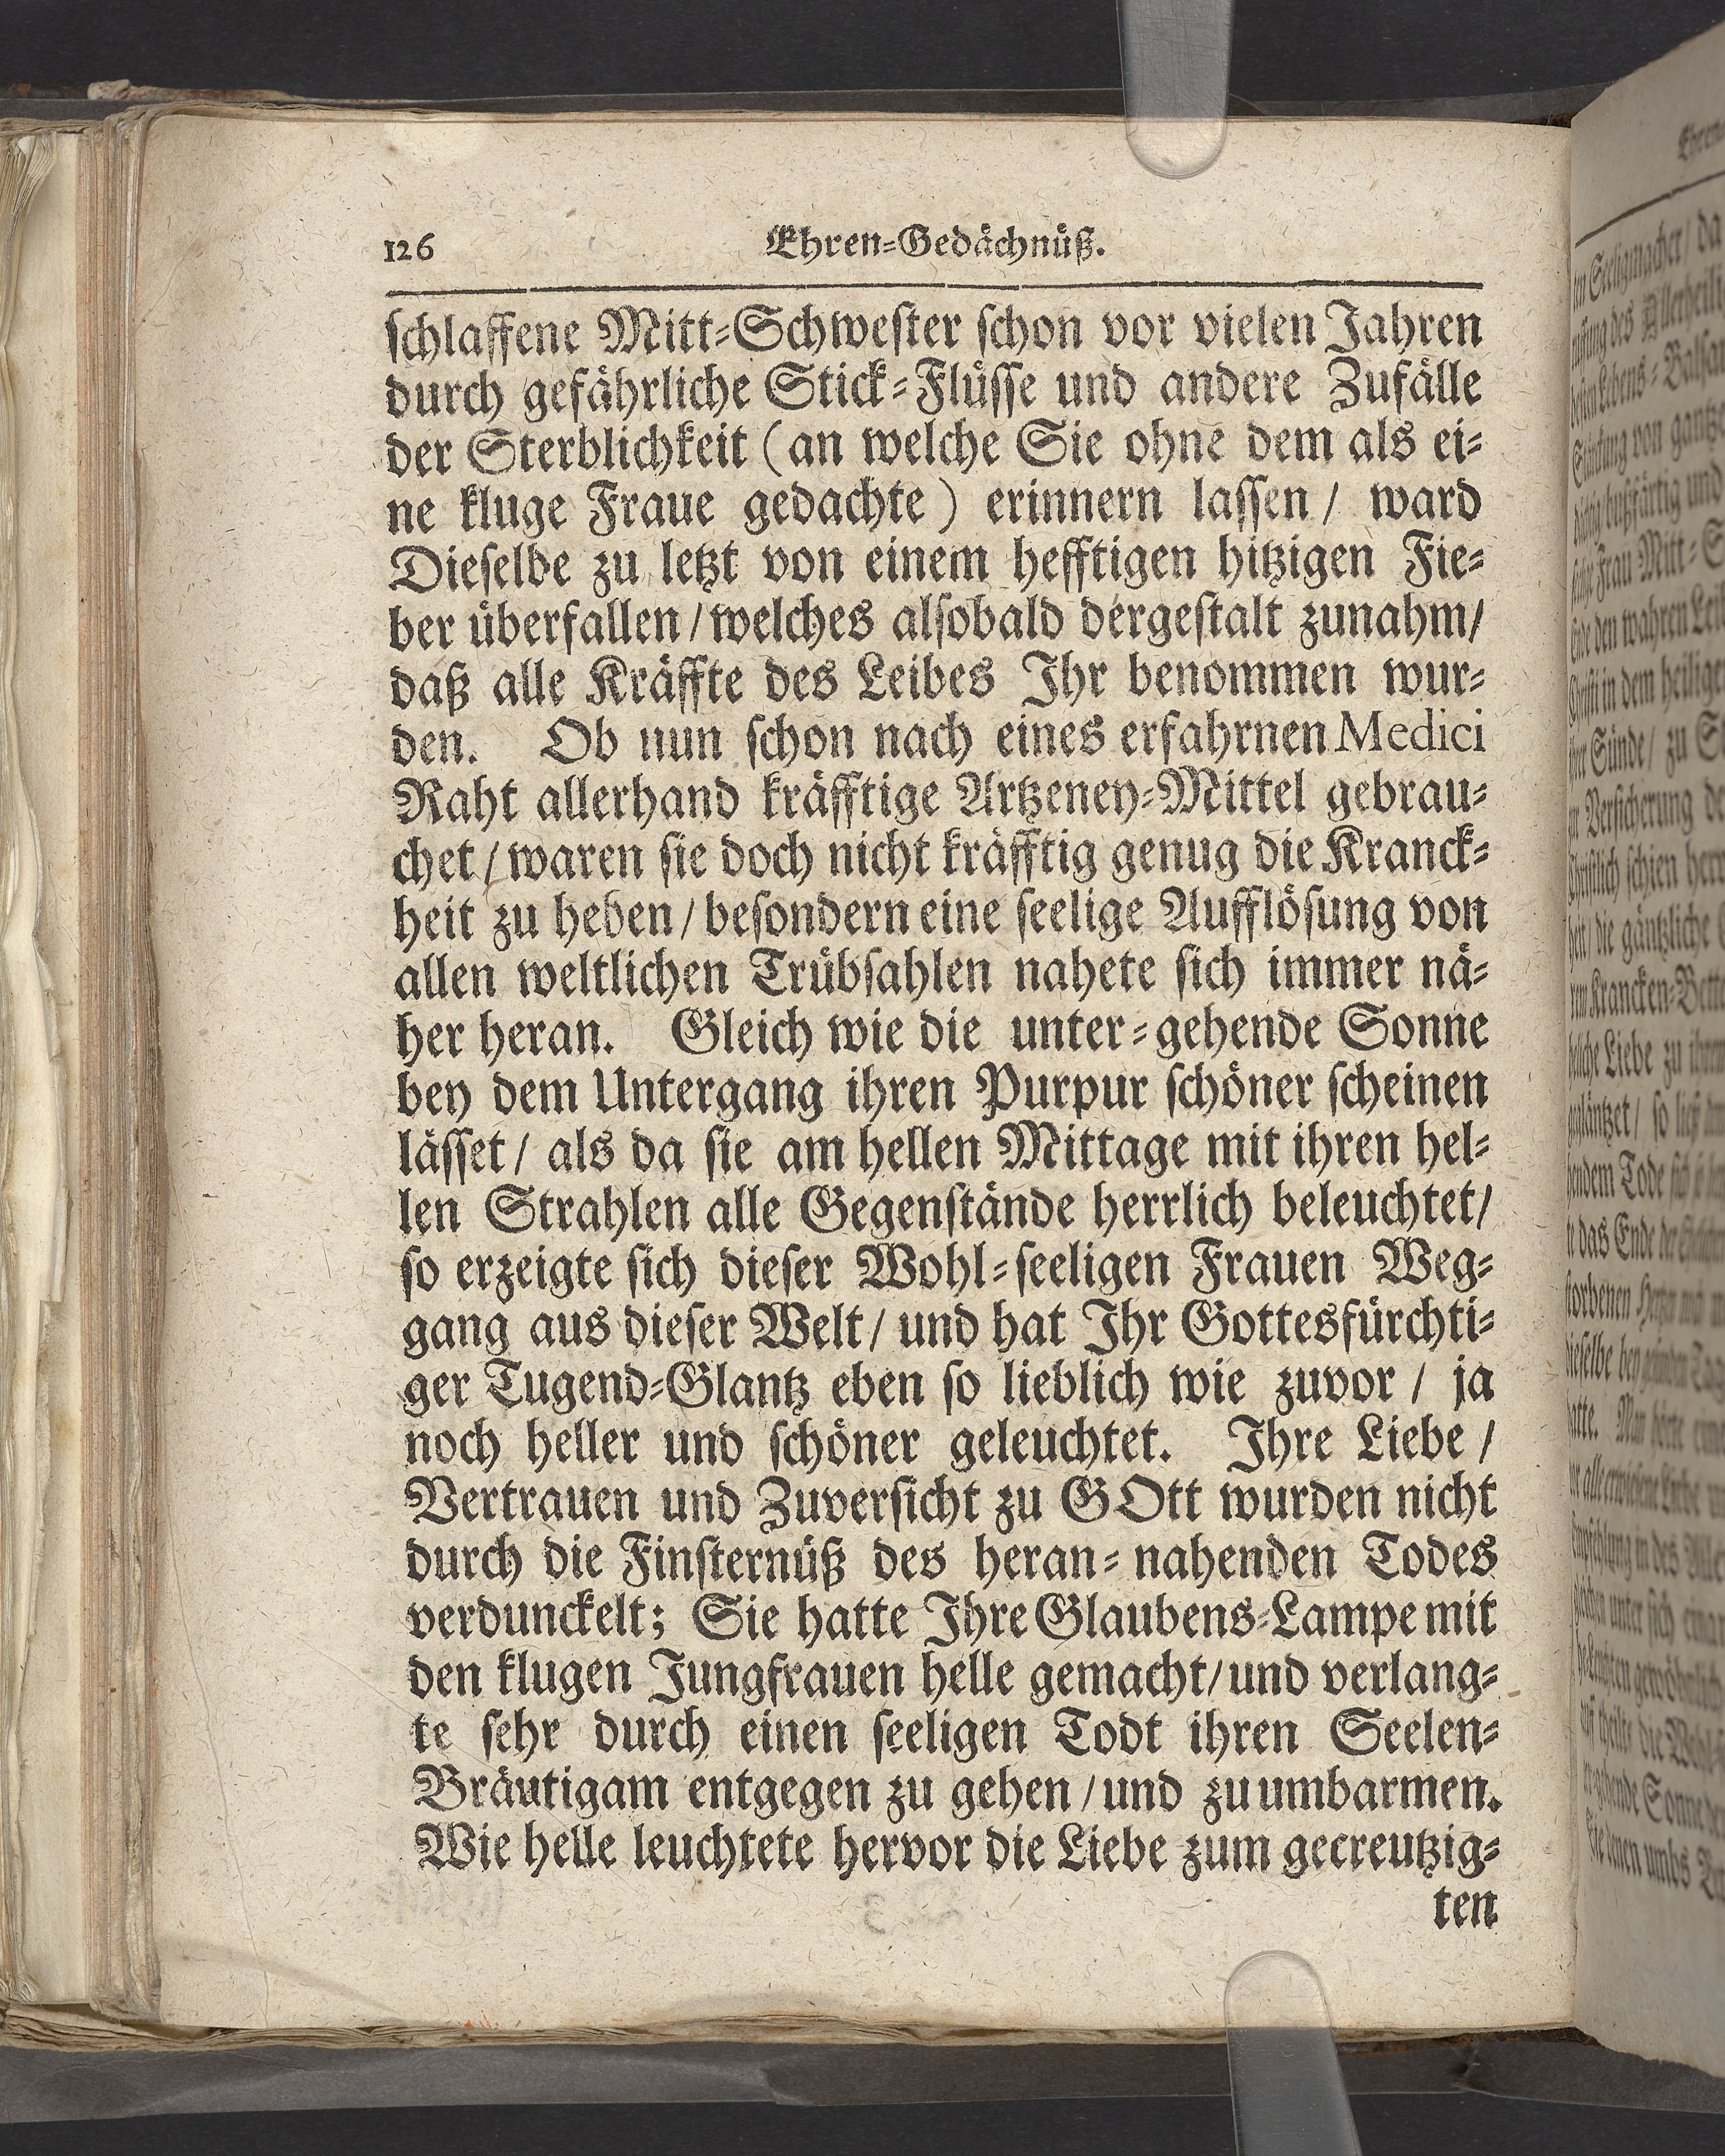 126 Ehren-Gedächnüß.
schlaffene Mitt-Schwester schon vor vielen Jahren
durch gefährliche Stick-Flüsse und andere Zufälle
der Sterblichkeit (an welche Sie ohne dem als ei-
ne kluge Fraue gedachte) erinnern lassen / ward
Dieselbe zu letzt von einem hefftigen hitzigen Fie-
ber überfallen / welches alsobald dergestalt zunahm/
daß alle Kräffte des Leibes Ihr benommen wur-
den. Ob nun schon nach eines erfahrnen Medici
Raht allerhand kräfftige Artzeney-Mittel gebrau-
chet / waren sie doch nicht kräfftig genug die Kranck-
heit zu heben / besondern eine seelige Aufflösung von
allen weltlichen Trübsahlen nahete sich immer nä-
her heran. Gleich wie die unter-gehende Sonne
bey dem Untergang ihren Purpur schöner scheinen
lässet / als da sie am hellen Mittage mit ihren hel-
len Strahlen alle Gegenstände herrlich beleuchtet/
so erzeigte sich dieser Wohl-seeligen Frauen Weg-
gang aus dieser Welt / und hat Ihr Gottesfürchti-
ger Tugend-Glantz eben so lieblich wie zuvor / ja
noch heller und schöner geleuchtet. Ihre Liebe /
Vertrauen und Zuversicht zu GOtt wurden nicht
durch die Finsternüß des heran-nahenden Todes
verdunckelt; Sie hatte Ihre Glaubens-Lampe mit
den klugen Jungfrauen helle gemacht/und verlang-
te sehr durch einen seeligen Todt ihren Seelen-
Bräutigam entgegen zu gehen / und zu umbarmen.
Wie helle leuchtete hervor die Liebe zum gecreutzig-
ten